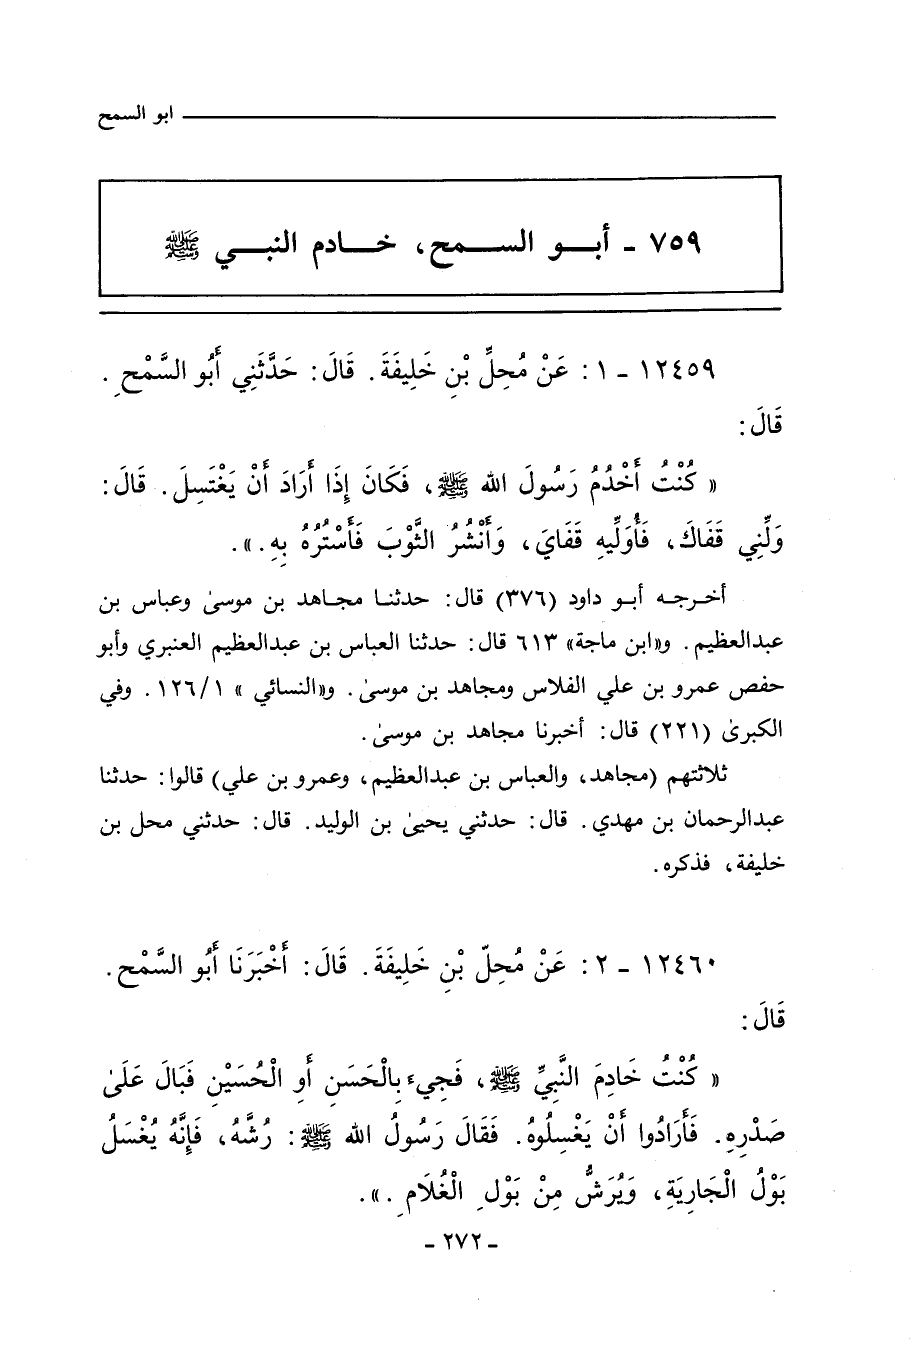 ابو السمح
٧٥٩ - أبــو الســمح، خــادم النبــي ﷺ
١٢٤٥٩ - ١ : عَنْ مُحِلِّ بْنِ خَلِيفَةَ. قَالَ: حَدَّثَنِي أَبُو السَّمْحِ.
قَالَ:
« كُنْتُ أَخْدُمُ رَسُولَ الله ﷺ، فَكَانَ إِذَا أَرَادَ أَنْ يَغْتَسِلَ. قَالَ:
وَلِّنِي قَفَاكَ، فَأُوَلِّيهِ قَفَايَ، وَأَنْشُرُ الثَّوْبَ فَأَسْتُرُهُ بِهِ.».
أخـرجـه أبـو داود (٣٧٦) قال: حدثنـا مجـاهد بن موسىٰ وعباس بن
عبدالعظيم. و«ابن ماجة» ٦١٣ قال: حدثنا العباس بن عبدالعظيم العنبري وأبو
حفص عمرو بن علي الفلاس ومجاهد بن موسىٰ. و«النسائي » ١٢٦/١. وفي
الكبرىٰ (٢٢١) قال: أخبرنا مجاهد بن موسىٰ.
ثلاثتهم (مجاهد، والعباس بن عبدالعظيم، وعمرو بن علي) قالوا: حدثنا
عبدالرحمان بن مهدي. قال: حدثني يحيىٰ بن الوليد. قال: حدثني محل بن
خليفة، فذكره.
١٢٤٦٠ - ٢ : عَنْ مُحِلّ بْنِ خَلِيفَةَ. قَالَ: أَخْبَرَنَا أَبُو السَّمْحِ.
قَالَ:
« كُنْتُ خَادِمَ النَّبِيِّ ﷺ، فَجِيءَ بِالْحَسَنِ أَوِ الْحُسَيْنِ فَبَالَ عَلَىٰ
صَدْرِهِ. فَأَرَادُوا أَنْ يَغْسِلُوهُ. فَقَالَ رَسُولُ الله ﷺ: رُشَّهُ، فَإِنَّهُ يُغْسَلُ
بَوْلُ الْجَارِيَةِ، وَيُرَشُّ مِنْ بَوْلِ الْغُلَامِ.».
- ٢٧٢ -